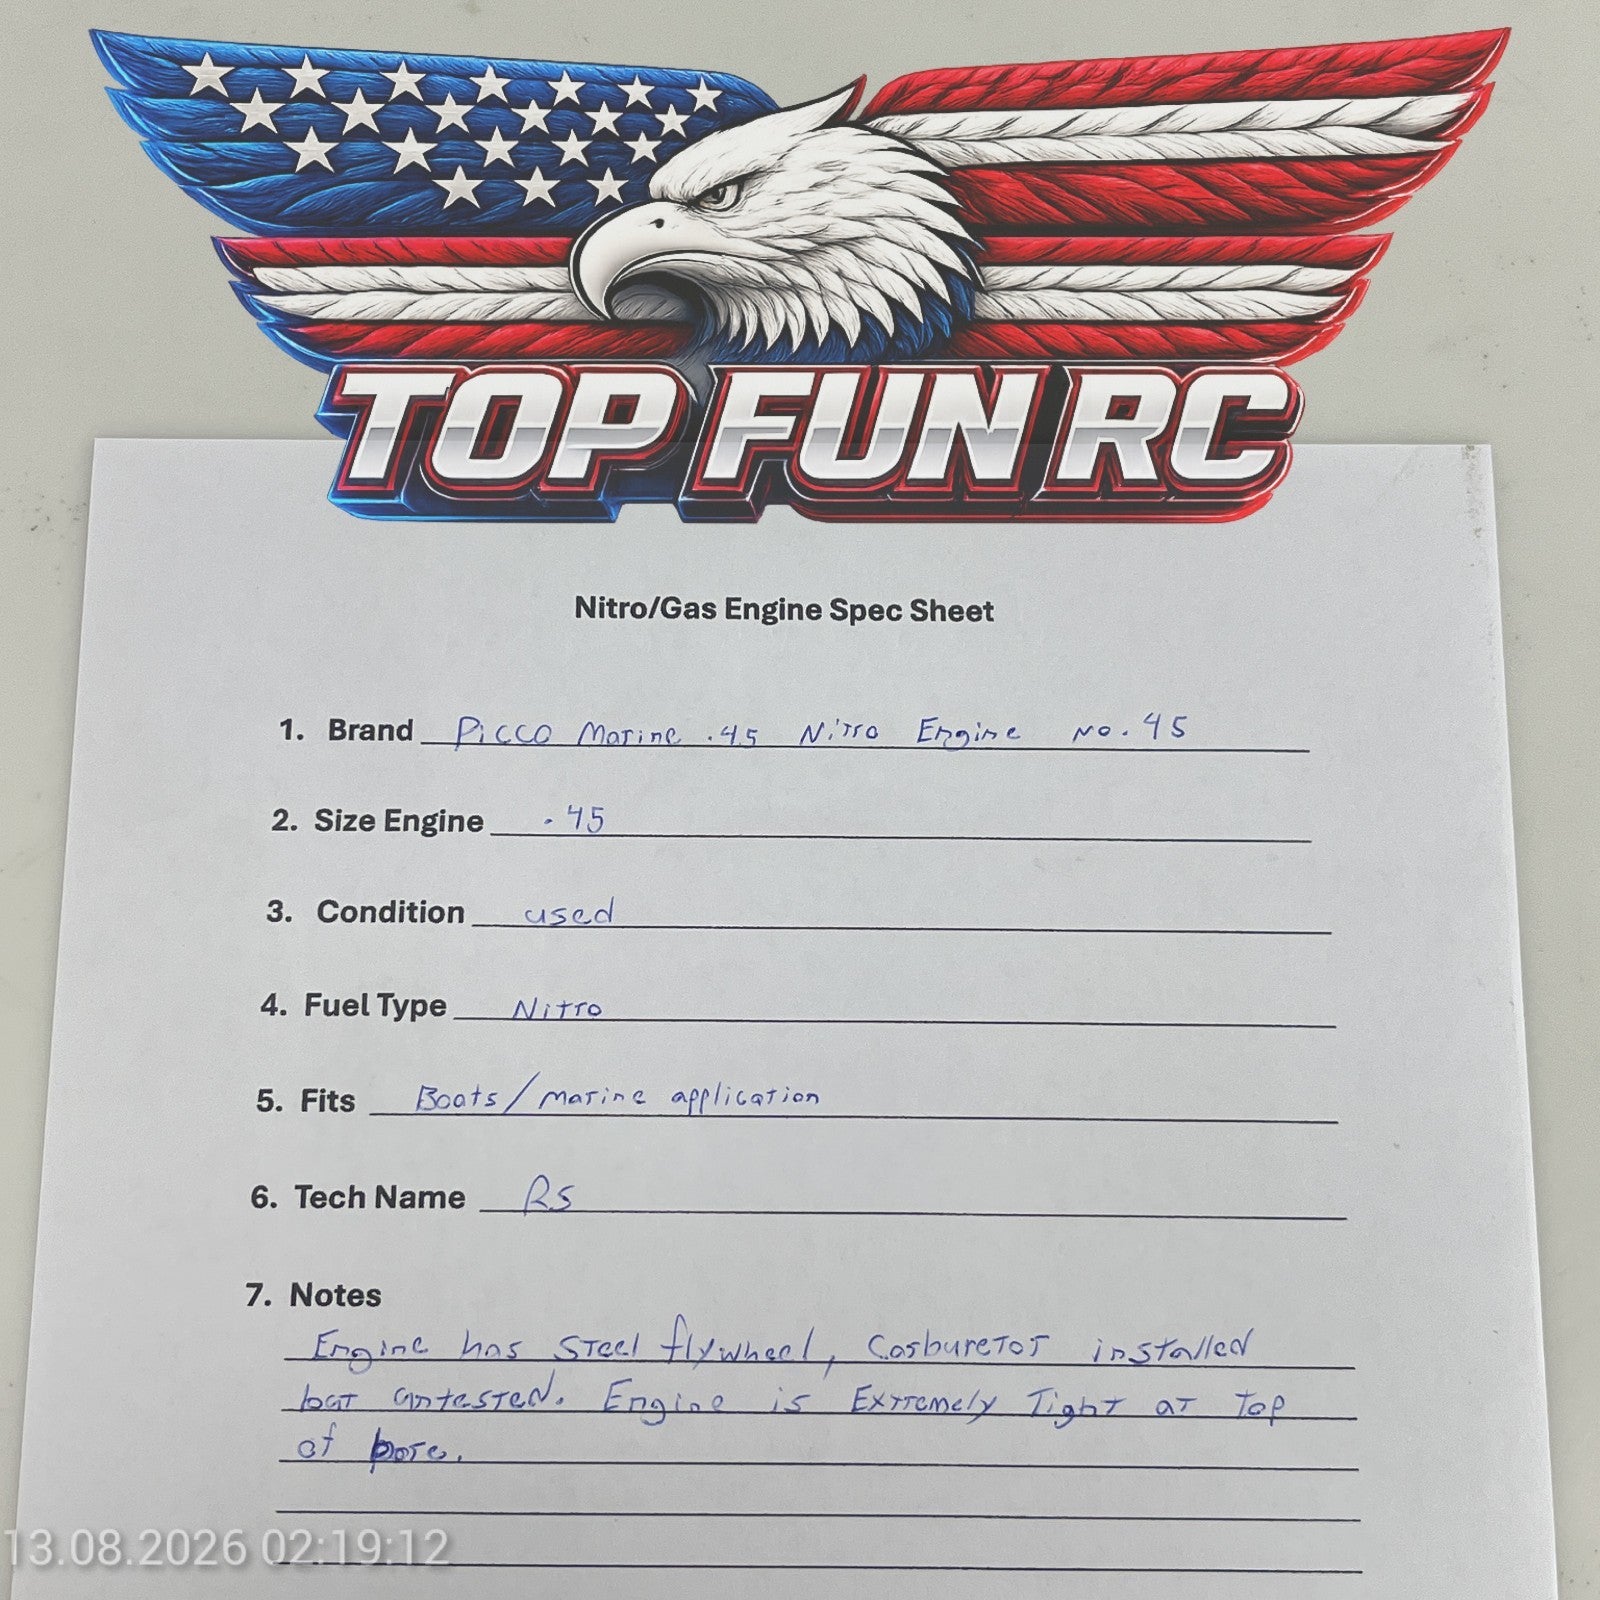 TOP FUN RC
Nitro/Gas Engine Spec Sheet
1. Brand Picco Marine .45 Nitro Engine No. 45
2. Size Engine .45
3. Condition used
4. Fuel Type Nitro
5. Fits Boats/marine application
6. Tech Name RS
7. Notes
Engine has Steel flywheel, Carburetor installed
but untested. Engine is Extremely Tight at Top
of bore.
13.08.2026 02:19:12